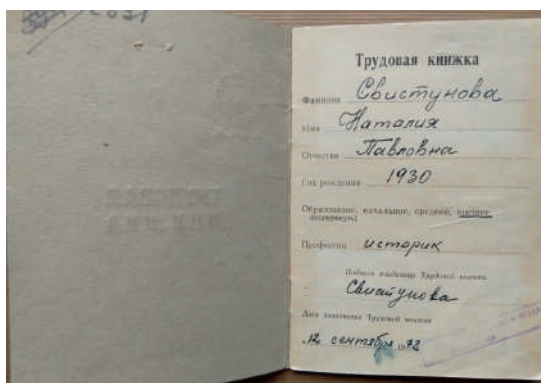 Трудовая книжка
Фамилия Свистунова
Имя Наталия
Отчество Павловна
Год рождения 1930
Образование: начальное, среднее, высшее
(подчеркнуть)
Профессия историк
Подпись владельца Трудовой книжки
Свистунова
Дата заполнения Трудовой книжки
12 сентября 1972